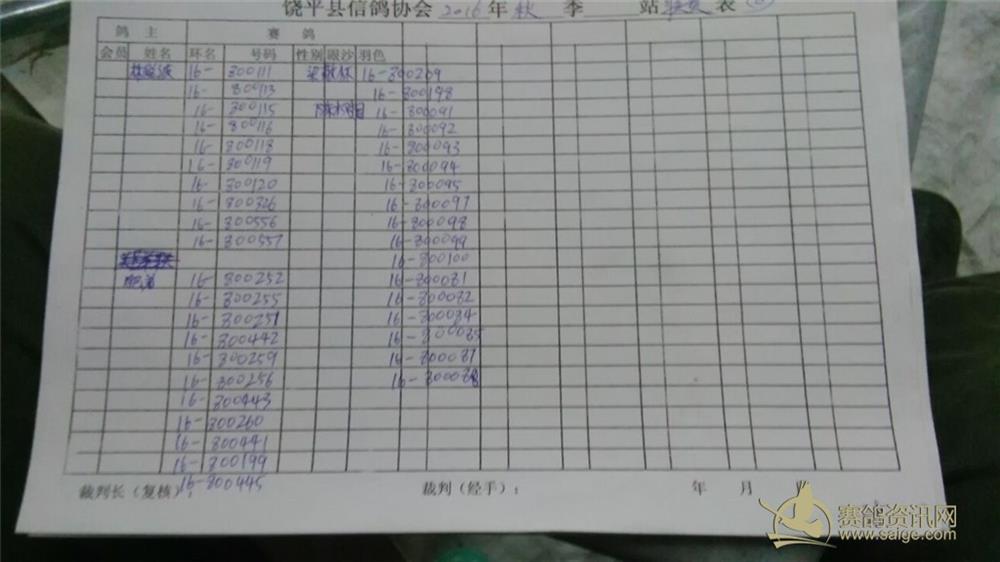 饶平县信鸽协会 2016 年 秋 季 站 表
鸽 主 赛 鸽
会员 姓名 环名 号码 性别 眼沙 羽色
16- 800111 16-800209
16- 800113 16-800198
16- 800115 16-800091
16- 800116 16-800092
16- 800118 16-800093
16- 800119 16-800094
16- 800120 16-800095
16- 800326 16-800097
16- 800556 16-800098
16- 800557 16-800099
16-800100
16- 800252 16-800081
16- 800255 16-800082
16- 800251 16-800084
16- 800442 16-800085
16- 800259 16-800087
16- 800256 16-800088
16- 800443
16- 800260
16- 800441
16- 800199
16-800445
裁判长（复核）： 裁判（经手）： 年 月
赛鸽资讯网
www.saige.com